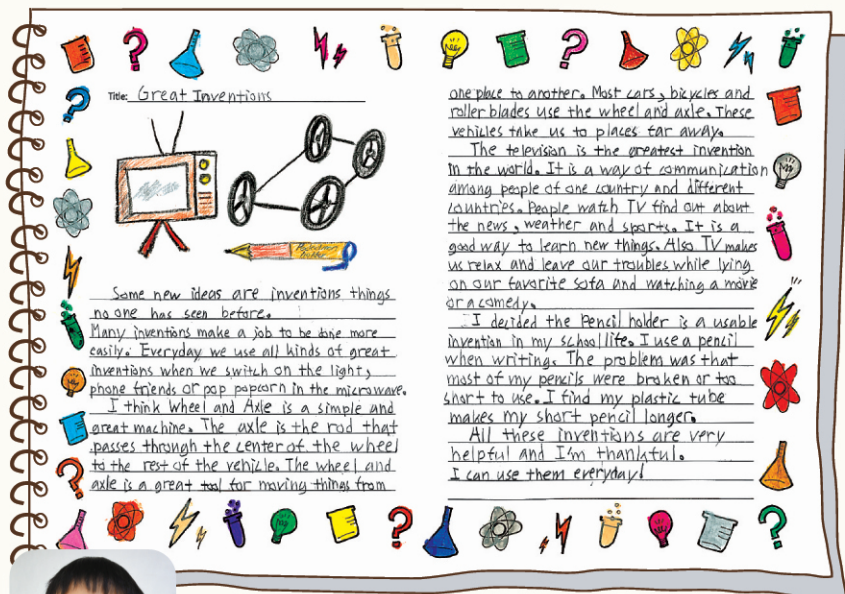 Title: Great Inventions
Some new ideas are inventions things
no one has seen before.
Many inventions make a job to be done more
easily. Everyday we use all kinds of great
inventions when we switch on the light,
phone friends or pop popcorn in the microwave.
I think Wheel and Axle is a simple and
great machine. The axle is the rod that
passes through the center of the wheel
to the rest of the vehicle. The wheel and
axle is a great tool for moving things from
one place to another. Most cars, bicycles and
roller blades use the wheel and axle. These
vehicles take us to places far away.
The television is the greatest invention
in the world. It is a way of communication
among people of one country and different
countries. People watch TV find out about
the news, weather and sports. It is a
good way to learn new things. Also TV makes
us relax and leave our troubles while lying
on our favorite sofa and watching a movie
or a comedy.
I decided the Pencil holder is a usable
invention in my school life. I use a pencil
when writing. The problem was that
most of my pencils were broken or too
short to use. I find my plastic tube
makes my short pencil longer.
All these inventions are very
helpful and I'm thankful.
I can use them everyday!